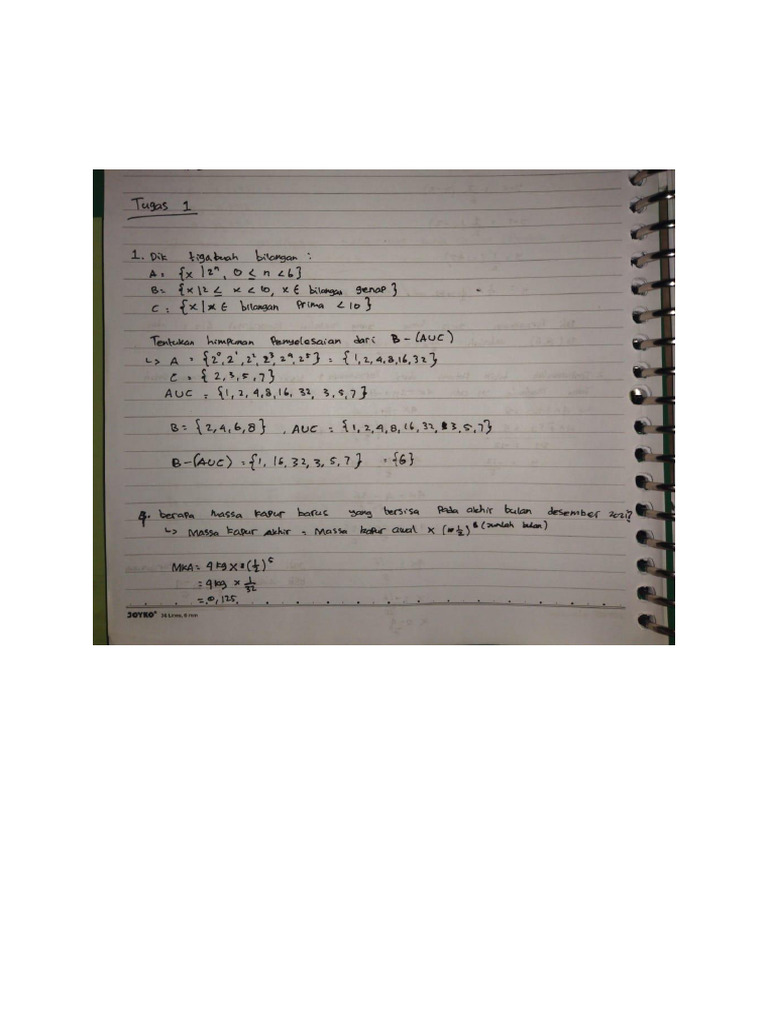 Tugas 1
1. Dik tiga buah bilangan :
A = {x | 2ⁿ, 0 ≤ n < 6}
B = {x | 2 ≤ x < 10, x ∈ bilangan genap}
C = {x | x ∈ bilangan Prima < 10}
Tentukan himpunan Penyelesaian dari B - (AUC)
↳ A = {2⁰, 2¹, 2², 2³, 2⁴, 2⁵} = {1, 2, 4, 8, 16, 32}
C = {2, 3, 5, 7}
AUC = {1, 2, 4, 8, 16, 32, 3, 5, 7}
B = {2, 4, 6, 8} , AUC = {1, 2, 4, 8, 16, 32, 3, 5, 7}
B - (AUC) = {1, 16, 32, 3, 5, 7} = {6}
berapa massa kapur barus yang tersisa Pada akhir bulan desember 2021?
↳ Massa kapur akhir = Massa kapur awal × (½) (Jumlah bulan)
MKA = 4 kg × (½)
= 4 kg × 1/32
= 0,125
JOYKO 26 Lines, 8 mm